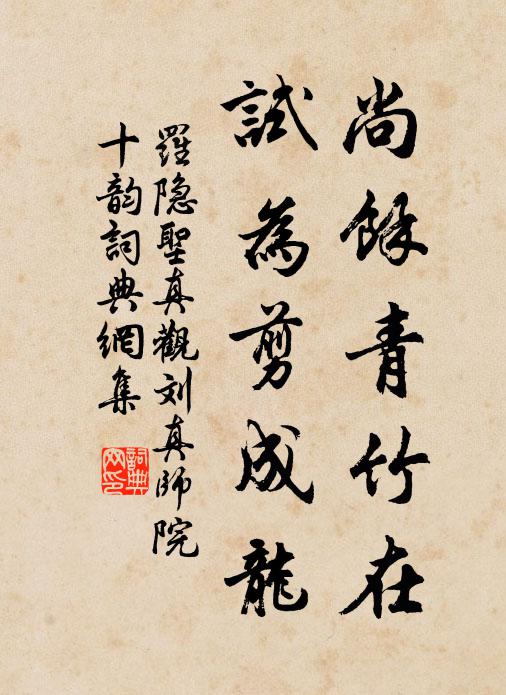 尚餘青竹在
試為剪成龍
羅隐聖真觀刘真師院
十韵詞典網集
詞典网印